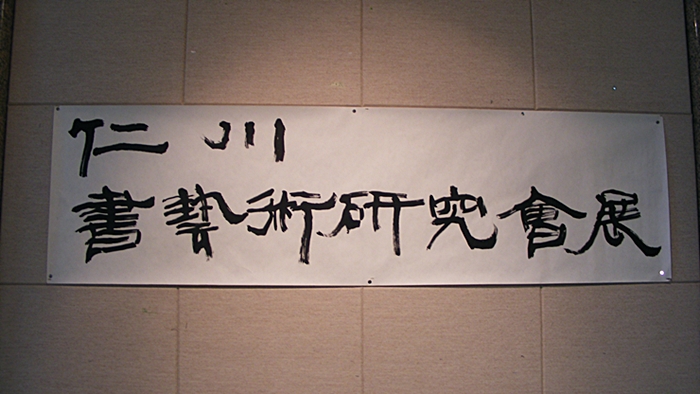 仁川
書藝術研究會展